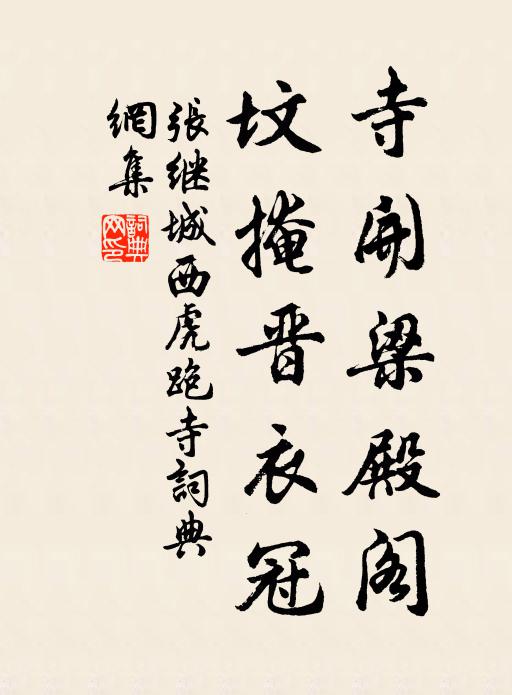 寺開梁殿阁
坟掩晋衣冠
張继城西虎跑寺詞典
網集
詞典
网印